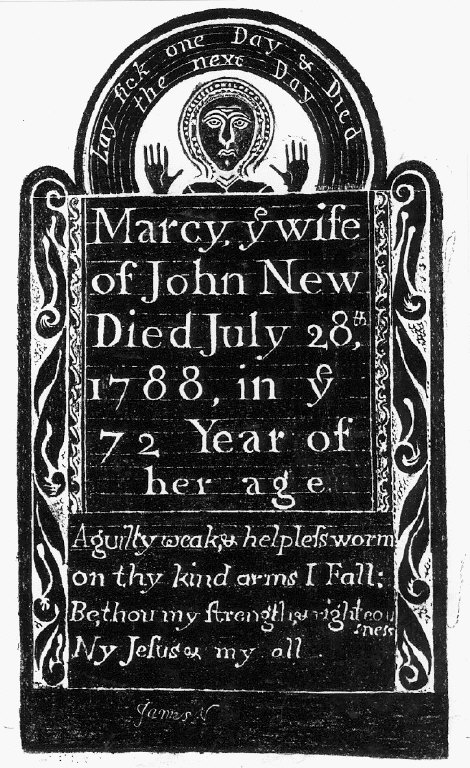 Lay ſick one Day & Died
the next Day
Marcy, yͤ wife
of John New
Died July 28,th
1788, in yͤ
72 Year of
her age
A guilty weak, & helpleſs worm
on thy kind arms I Fall:
Be, thou my ſtrength & righteou
sneſs
My Jeſus & my all .
James N